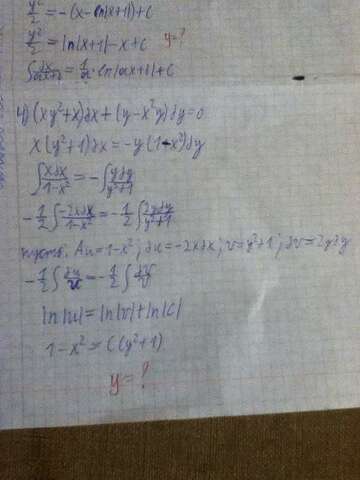 y²/2 = -(x - ln|x+1|) + C
y²/2 = ln|x+1| - x + C y=?
∫dx/(ax+b) = 1/a · ln|ax+b| + C
4) (xy²+x)dx + (y-x²y)dy = 0
x(y²+1)dx = -y(1-x²)dy
∫xdx/(1-x²) = -∫ydy/(y²+1)
-1/2 ∫-2xdx/(1-x²) = -1/2 ∫2ydy/(y²+1)
пусть. u=1-x²; du=-2xdx; v=y²+1; dv=2ydy
-1/2 ∫du/u = -1/2 ∫dv/v
ln|u| = ln|v| + ln|c|
1-x² = C(y²+1)
y=?